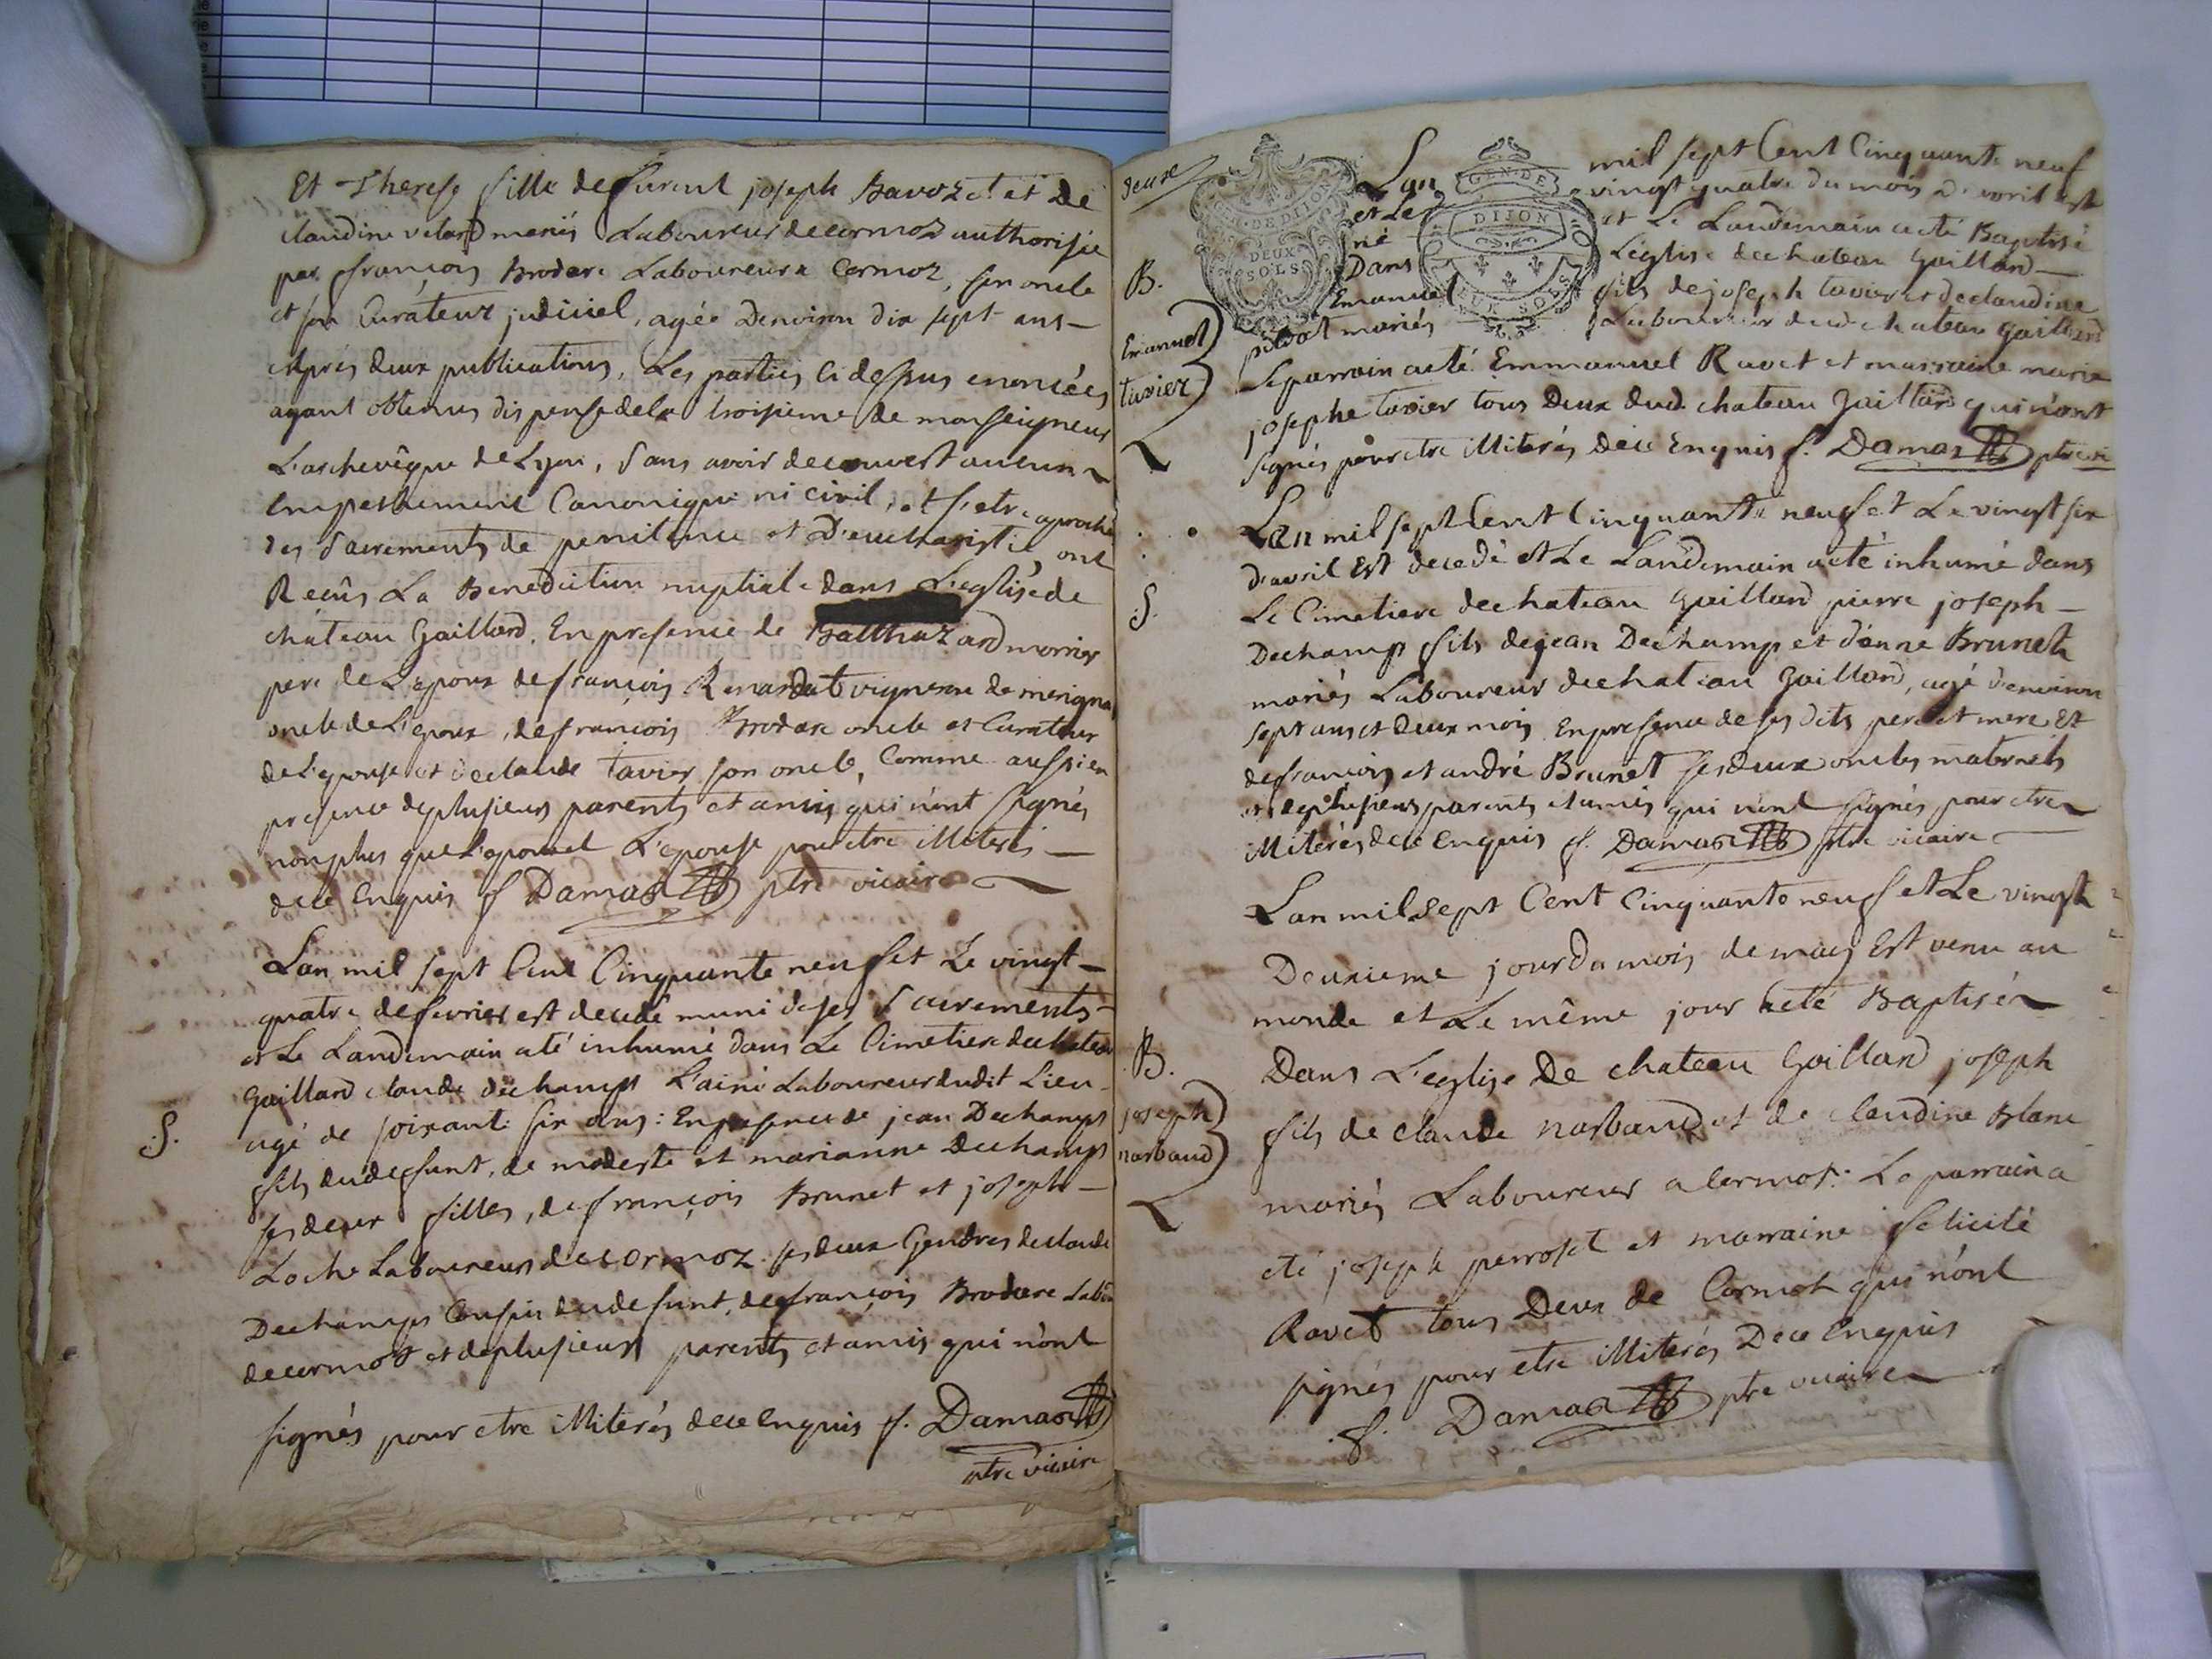 Et Therese fille de furent joseph Bavozet et de
claudine velard mariés Laboureur de cormoz authorisée
par françois Brodere Laboureur a Cormoz, son oncle
et son Curateur judiciel, agée Denviron dix sept ans —
Après deux publications, Les parties ci dessus enoncées
ayant obtenus dispense de la troisieme de monseigneur
L'archevêque de Lyon, Sans avoir decouvert aucun
Empeschement Canonique ni civil, et s'etre aproché
des Sacrements de penitence et D'eucharistie, ont
Recûs La Benediction nuptiale dans L'eglise de
chateau Gaillard. En presence de Balthazard
pere de L'epoux de françois Renardat vigneron de merigna
oncle de L'epoux, de françois Brodere oncle et Curateur
de L'epouse et de claude tavier son oncle, Comme aussi en
presence de plusieurs parents et amis, qui n'ont signés
non plus que L'epoux et L'epouse pour etre illiterés —
de ce Enquis f Damas ptre vicaire
Lan mil sept Cent Cinquante neuf et Le vingt —
quatre de fevrier est decedé muni de ses Sacrements
et Le Landemain a té inhumé dans Le Cimetiere de chateau
Gaillard claude dechamps L'ainé Laboureur dudit Lieu
agé de soixante six ans: En presence de jean Dechamps
S.
fils du defunt, de modeste et marianne Dechamps
ses deux filles, de françois Brunet et joseph —
Loche Laboureurs de cormoz ses deux Gendres de claude
Dechamps Cousin du defunt, de françois Brodere Labou
de cormoz et de plusieurs parents et amis qui n'ont
signés pour etre illiterés de ce Enquis f. Damas
ptre vicaire
deuxe
GEN. DE DIJON
DEUX SOLS
GEN. DE
DIJON
DEUX SOLS
Lan mil sept Cent Cinquante neuf
et Le vingt quatre du mois d'avril est
né et Le Landemain a eté Baptisé
B.
Dans L'église de chateau Gaillard —
Emanuel fils de joseph tavier et de claudine
pitiot mariés Laboureur dud. chateau Gaillard
Emanuel
tavier
Le parrain a eté Emmanuel Ravet et marraine marie
josephe tavier tous Deux dud. chateau Gaillard qui n'ont
signés pour etre illiterés de ce Enquis f. Damas ptre vi
Lan mil sept Cent Cinquante neuf et Le vingt six
d'avril Est decedé et Le Landemain a eté inhumé dans
S.
Le Cimetiere de chateau Gaillard pierre joseph —
Dechamps fils de jean Dechamps et d'anne Brunet
mariés Laboureur de chateau Gaillard, agé d'environ
sept ans et deux mois En presence de ses dits pere et mere Et
de françois et andré Brunet ses deux oncles maternels
et de plusieurs parents et amis qui n'ont signés pour etre
illiterés de ce Enquis f. Damas ptre vicaire
Lan mil sept Cent Cinquante neuf et Le vingt
Deuxieme jour du mois de may Est venu au
monde et Le même jour a eté Baptisé
B.
Dans L'eglise De chateau Gaillard joseph
joseph
narbaud
fils de claude narbaud et de claudine Blanc
mariés Laboureur a Cermoz: Le parrain a
eté joseph perroset et marraine felicité
Ravet tous Deux de Cormoz qui n'ont
signés pour etre illiterés De ce Enquis
f. Damas ptre vicaire